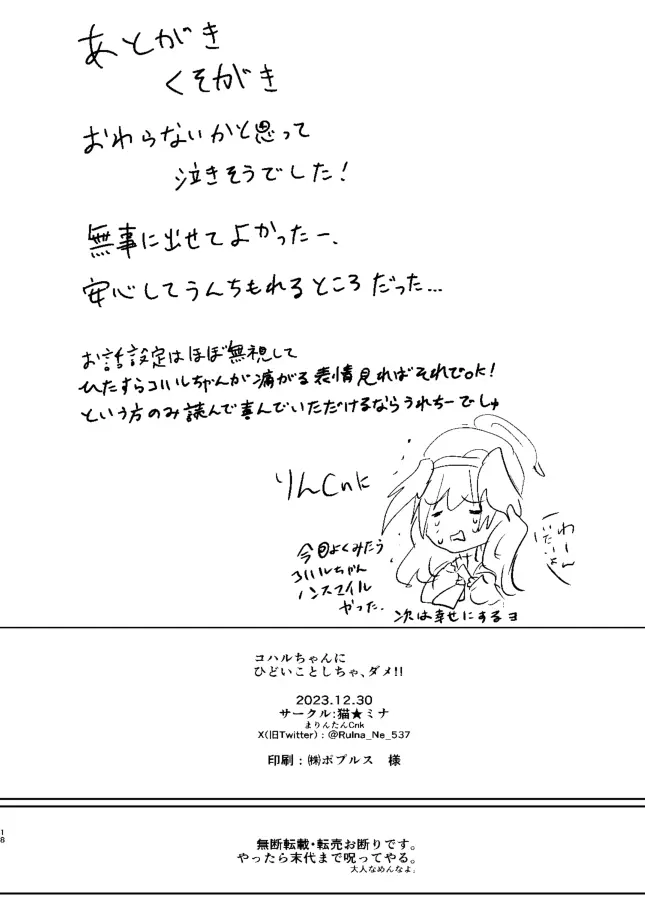 あとがき
くそがき
おわらないかと思って
泣きそうでした!
無事に出せてよかったー、
安心してうんちもれるところだった...
お話設定はほぼ無視して
ひたすらコハルちゃんが痛がる表情見ればそれでOK!
という方のみ読んで喜んでいただけるならうれちーでしゅ
りんCnに
わーん
いたいよ〜
今回よくみたら
コハルちゃん
ノンスマイル
やった.
次は幸せにするヨ
コハルちゃんに
ひどいことしちゃ、ダメ!!
2023.12.30
サークル:猫★ミナ
まりんたんCnk
X(旧Twitter):@RuIna_Ne_537
印刷:㈱ポプルス 様
18
無断転載・転売お断りです。
やったら末代まで呪ってやる。
大人なめんなよ。